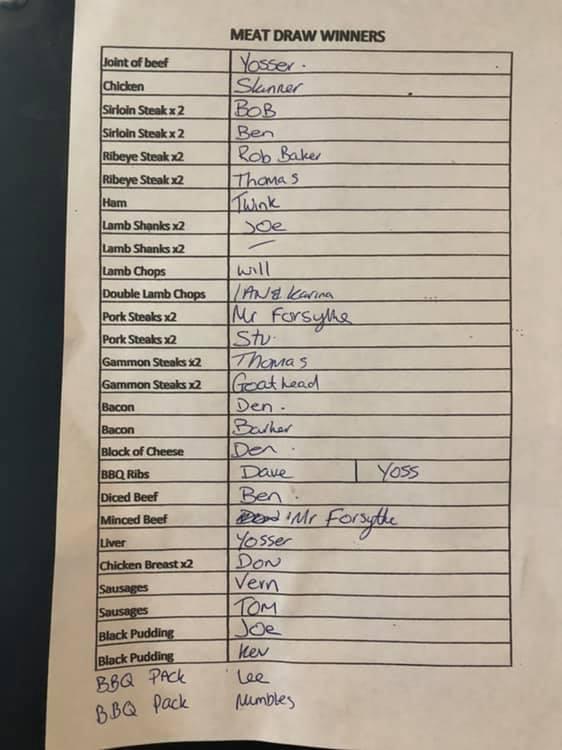 MEAT DRAW WINNERS
Joint of beef Yosser.
Chicken Skinner
Sirloin Steak x 2 BOB
Sirloin Steak x 2 Ben
Ribeye Steak x2 Rob Baker
Ribeye Steak x2 Thomas
Ham Twink
Lamb Shanks x2 JOe
Lamb Shanks x2 —
Lamb Chops Will
Double Lamb Chops IAN & Karina
Pork Steaks x2 Mr Forsythe
Pork Steaks x2 Stu.
Gammon Steaks x2 Thomas
Gammon Steaks x2 Goathead
Bacon Den.
Bacon Barker
Block of Cheese Den.
BBQ Ribs Dave | Yoss
Diced Beef Ben.
Minced Beef Mr Forsythe
Liver Yosser
Chicken Breast x2 DON
Sausages Vern
Sausages TOM
Black Pudding Joe
Black Pudding Kev
BBQ PAck Lee
BBQ Pack Numbles